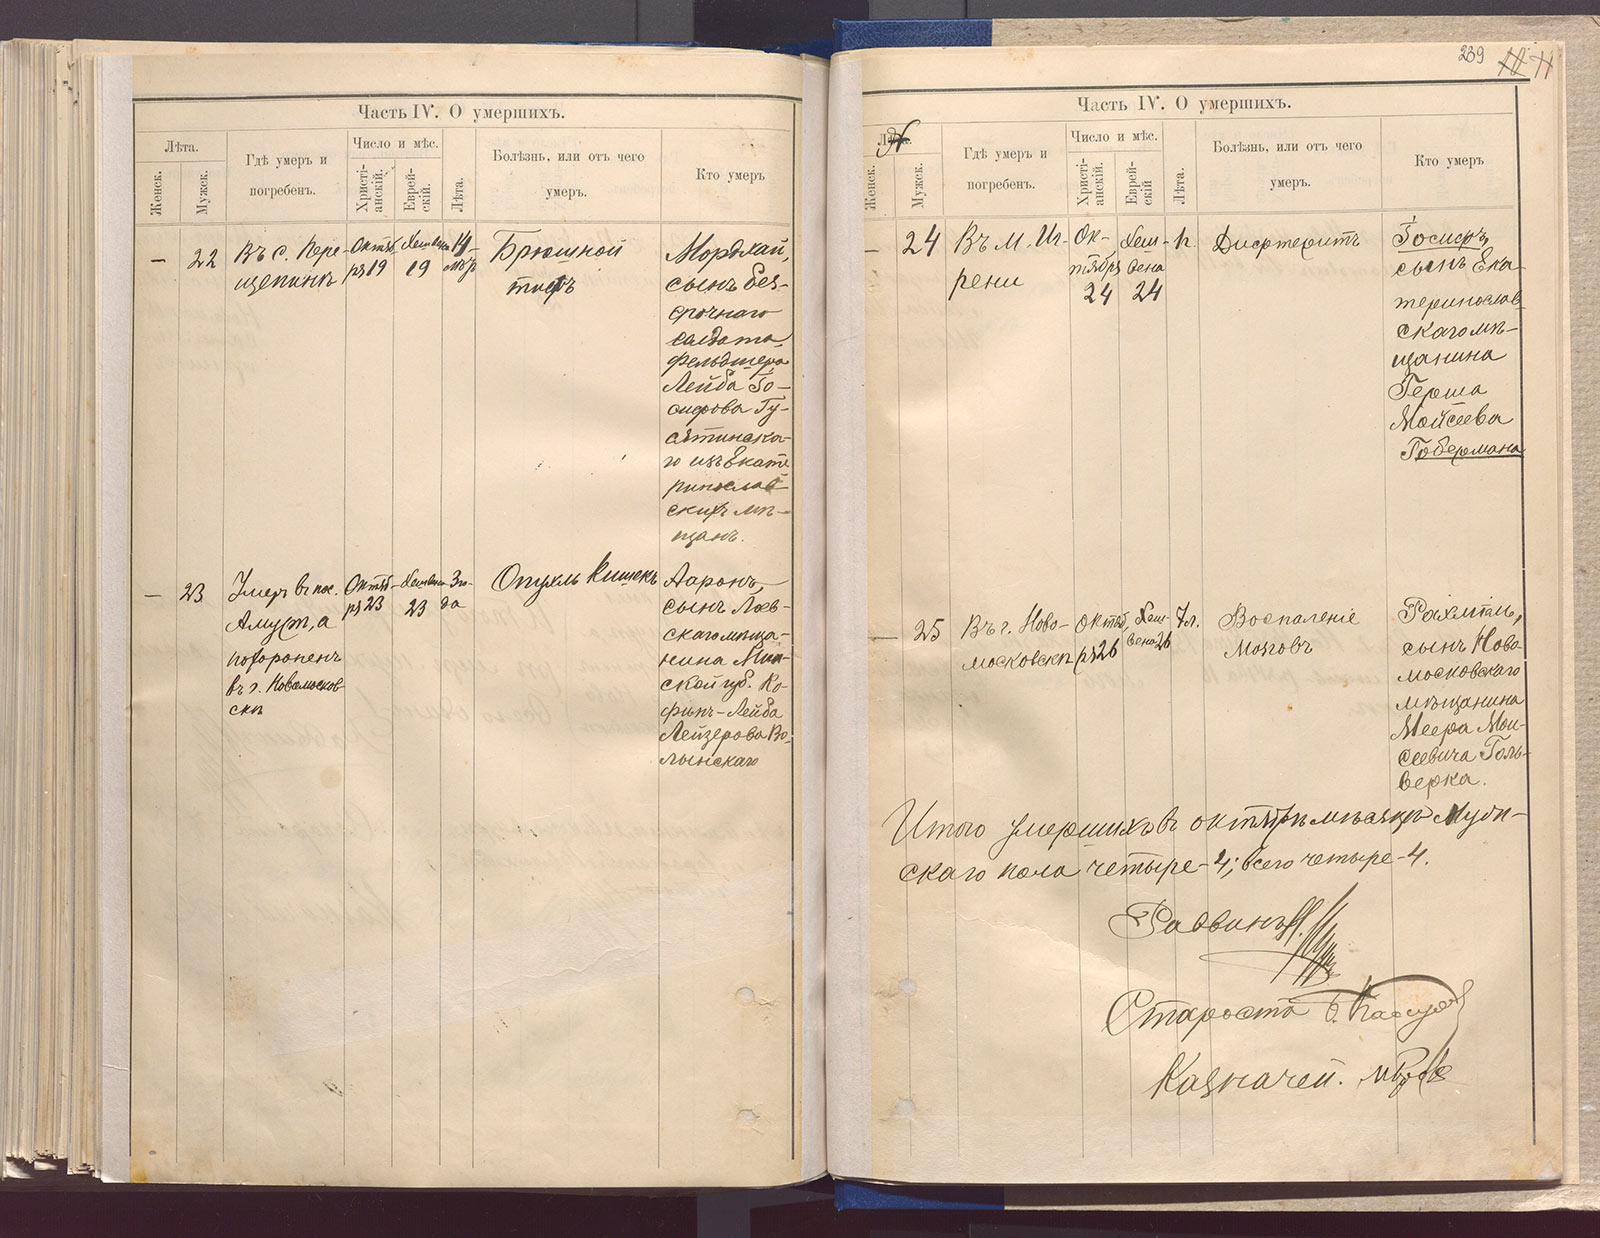 Часть IV. О умершихъ.
Лѣта.
Женск.
Мужск.
Гдѣ умеръ и
погребенъ.
Число и мѣс.
Христі-
анскій.
Еврей-
скій.
Лѣта.
Болѣзнь, или отъ чего
умеръ.
Кто умеръ
— 22
Въ с. Пере-
щепинѣ
Октяб
ря 19
19
14
Брюшной
тифъ
Мордхай,
сынъ без-
срочнаго
солдата,
фельдшера
Лейба Іо-
сифова Гу-
сятинска-
го изъ Екате
ринослав
скихъ мѣ-
щанъ.
— 23
Умеръ въ пос.
Амуръ, а
похороненъ
въ г. Новомосков
скѣ
Октяб-
ря 23
23
3 го-
да
Опухль Кишекъ
Ааронъ,
сынъ Лоев-
скаго мѣща-
нина Мин-
ской губ. Ко-
финъ-Лейба
Лейзерова Во-
лынскаго
239
11
Часть IV. О умершихъ.
Лѣта.
Женск.
Мужск.
Гдѣ умеръ и
погребенъ.
Число и мѣс.
Христі-
анскій.
Еврей-
скій
Лѣта.
Болѣзнь, или отъ чего
умеръ.
Кто умеръ
— 24
Въ м. Иг-
рени
Ок-
тября
24
Хеш-
вена
24
Дифтеритъ
Іосифъ
сынъ Ека-
теринослав
скаго мѣ-
щанина
Герша
Мойсеева
Гобермана
— 25
Въ г. Ново-
московскѣ
Октяб,
ря 26
Хеш-
вена 26
7 л.
Воспаленіе
мозговъ
Рахміль,
сынъ Ново
московскаго
мѣщанина
Меера Мои-
сеевича Голь-
верка.
Итого умершихъ въ октябрѣ мѣсяцѣ Муж-
скаго пола четыре-4; всего четыре-4.
Раввинъ
Староста
Казначей.